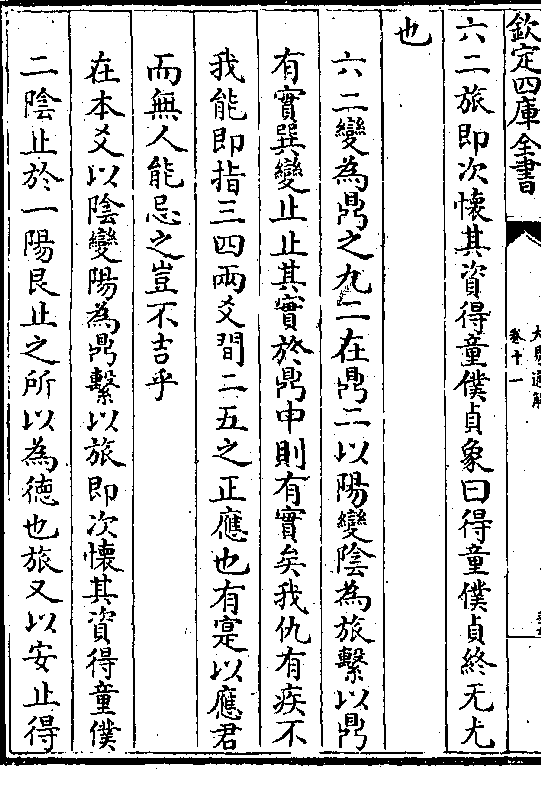 欽定四庫全書
卷十一
六二旅即次懷其資得童僕貞象曰得童僕貞終无尤
也
六二變為鼎之九二在鼎二以陽變陰為旅繫以鼎
有實巽變止止其實於鼎中則有實矣我仇有疾不
我能即指三四兩爻間二五之正應也有寔以應君
而無人能忌之豈不吉乎
在本爻以陰變陽為鼎繫以旅即次懷其資得童僕
二陰止於一陽艮止之所以為德也旅又以安止得